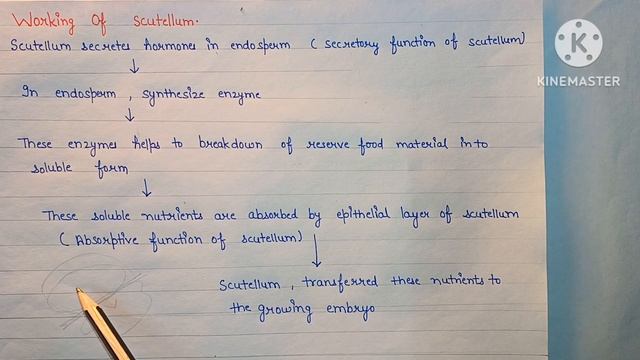 Working Of scutellum.
Scutellum secretes hormones in endosperm ( secretory function of scutellum)
In endosperm , synthesize enzyme
These enzymes helps to breakdown of reserve food material in to
soluble form
These soluble nutrients are absorbed by epithelial layer of scutellum
( Absorptive function of scutellum)
Scutellum , transferred these nutrients to
the growing embryo
KINEMASTER